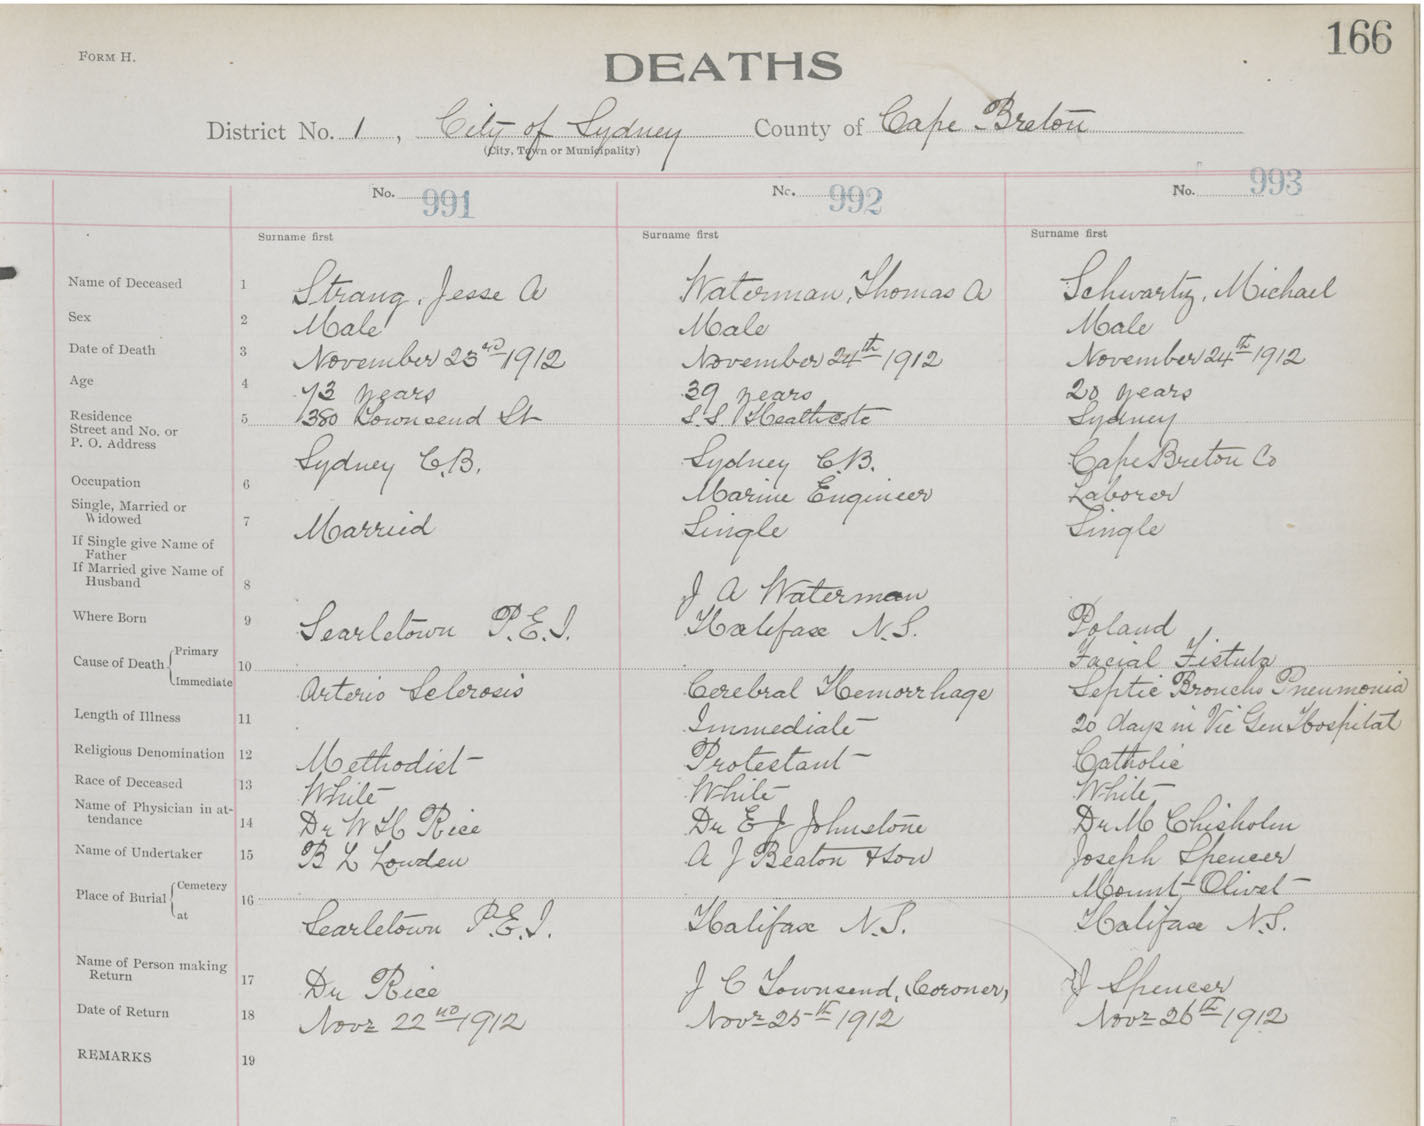 166
FORM H.
DEATHS
District No. 1, City of Sydney County of Cape Breton
(City, Town or Municipality)
No. 991 No. 992 No. 993
Surname first Surname first Surname first
Name of Deceased 1 Strang, Jesse A Waterman, Thomas A Schwartz, Michael
Sex 2 Male Male Male
Date of Death 3 November 23rd 1912 November 24th 1912 November 24th 1912
Age 4 73 years 39 years 20 years
Residence 5 380 Townsend St S.S. Heathcote Sydney
Street and No. or
P. O. Address Sydney C.B. Sydney C.B. Cape Breton Co
Occupation 6 Marine Engineer Laborer
Single, Married or
Widowed 7 Married Single Single
If Single give Name of
Father
If Married give Name of
Husband 8 J A Waterman
Where Born 9 Searletown P.E.I. Halifax N.S. Poland
Cause of Death Primary 10 Facial Fistula
Immediate Arterio Sclerosis Cerebral Hemorrhage Septic Broncho Pneumonia
Length of Illness 11 Immediate 20 days in Vic Gen Hospital
Religious Denomination 12 Methodist Protestant Catholic
Race of Deceased 13 White White White
Name of Physician in at-
tendance 14 Dr W H Rice Dr E J Johnstone Dr M Chisholm
Name of Undertaker 15 B L Lowden A J Beaton & Son Joseph Spencer
Place of Burial Cemetery 16 Mount Olivet
at Searletown P.E.I. Halifax N.S. Halifax N.S.
Name of Person making
Return 17 Dr Rice J C Townsend, (Coroner) J Spencer
Date of Return 18 Novr 22nd 1912 Novr 25th 1912 Novr 26th 1912
REMARKS 19